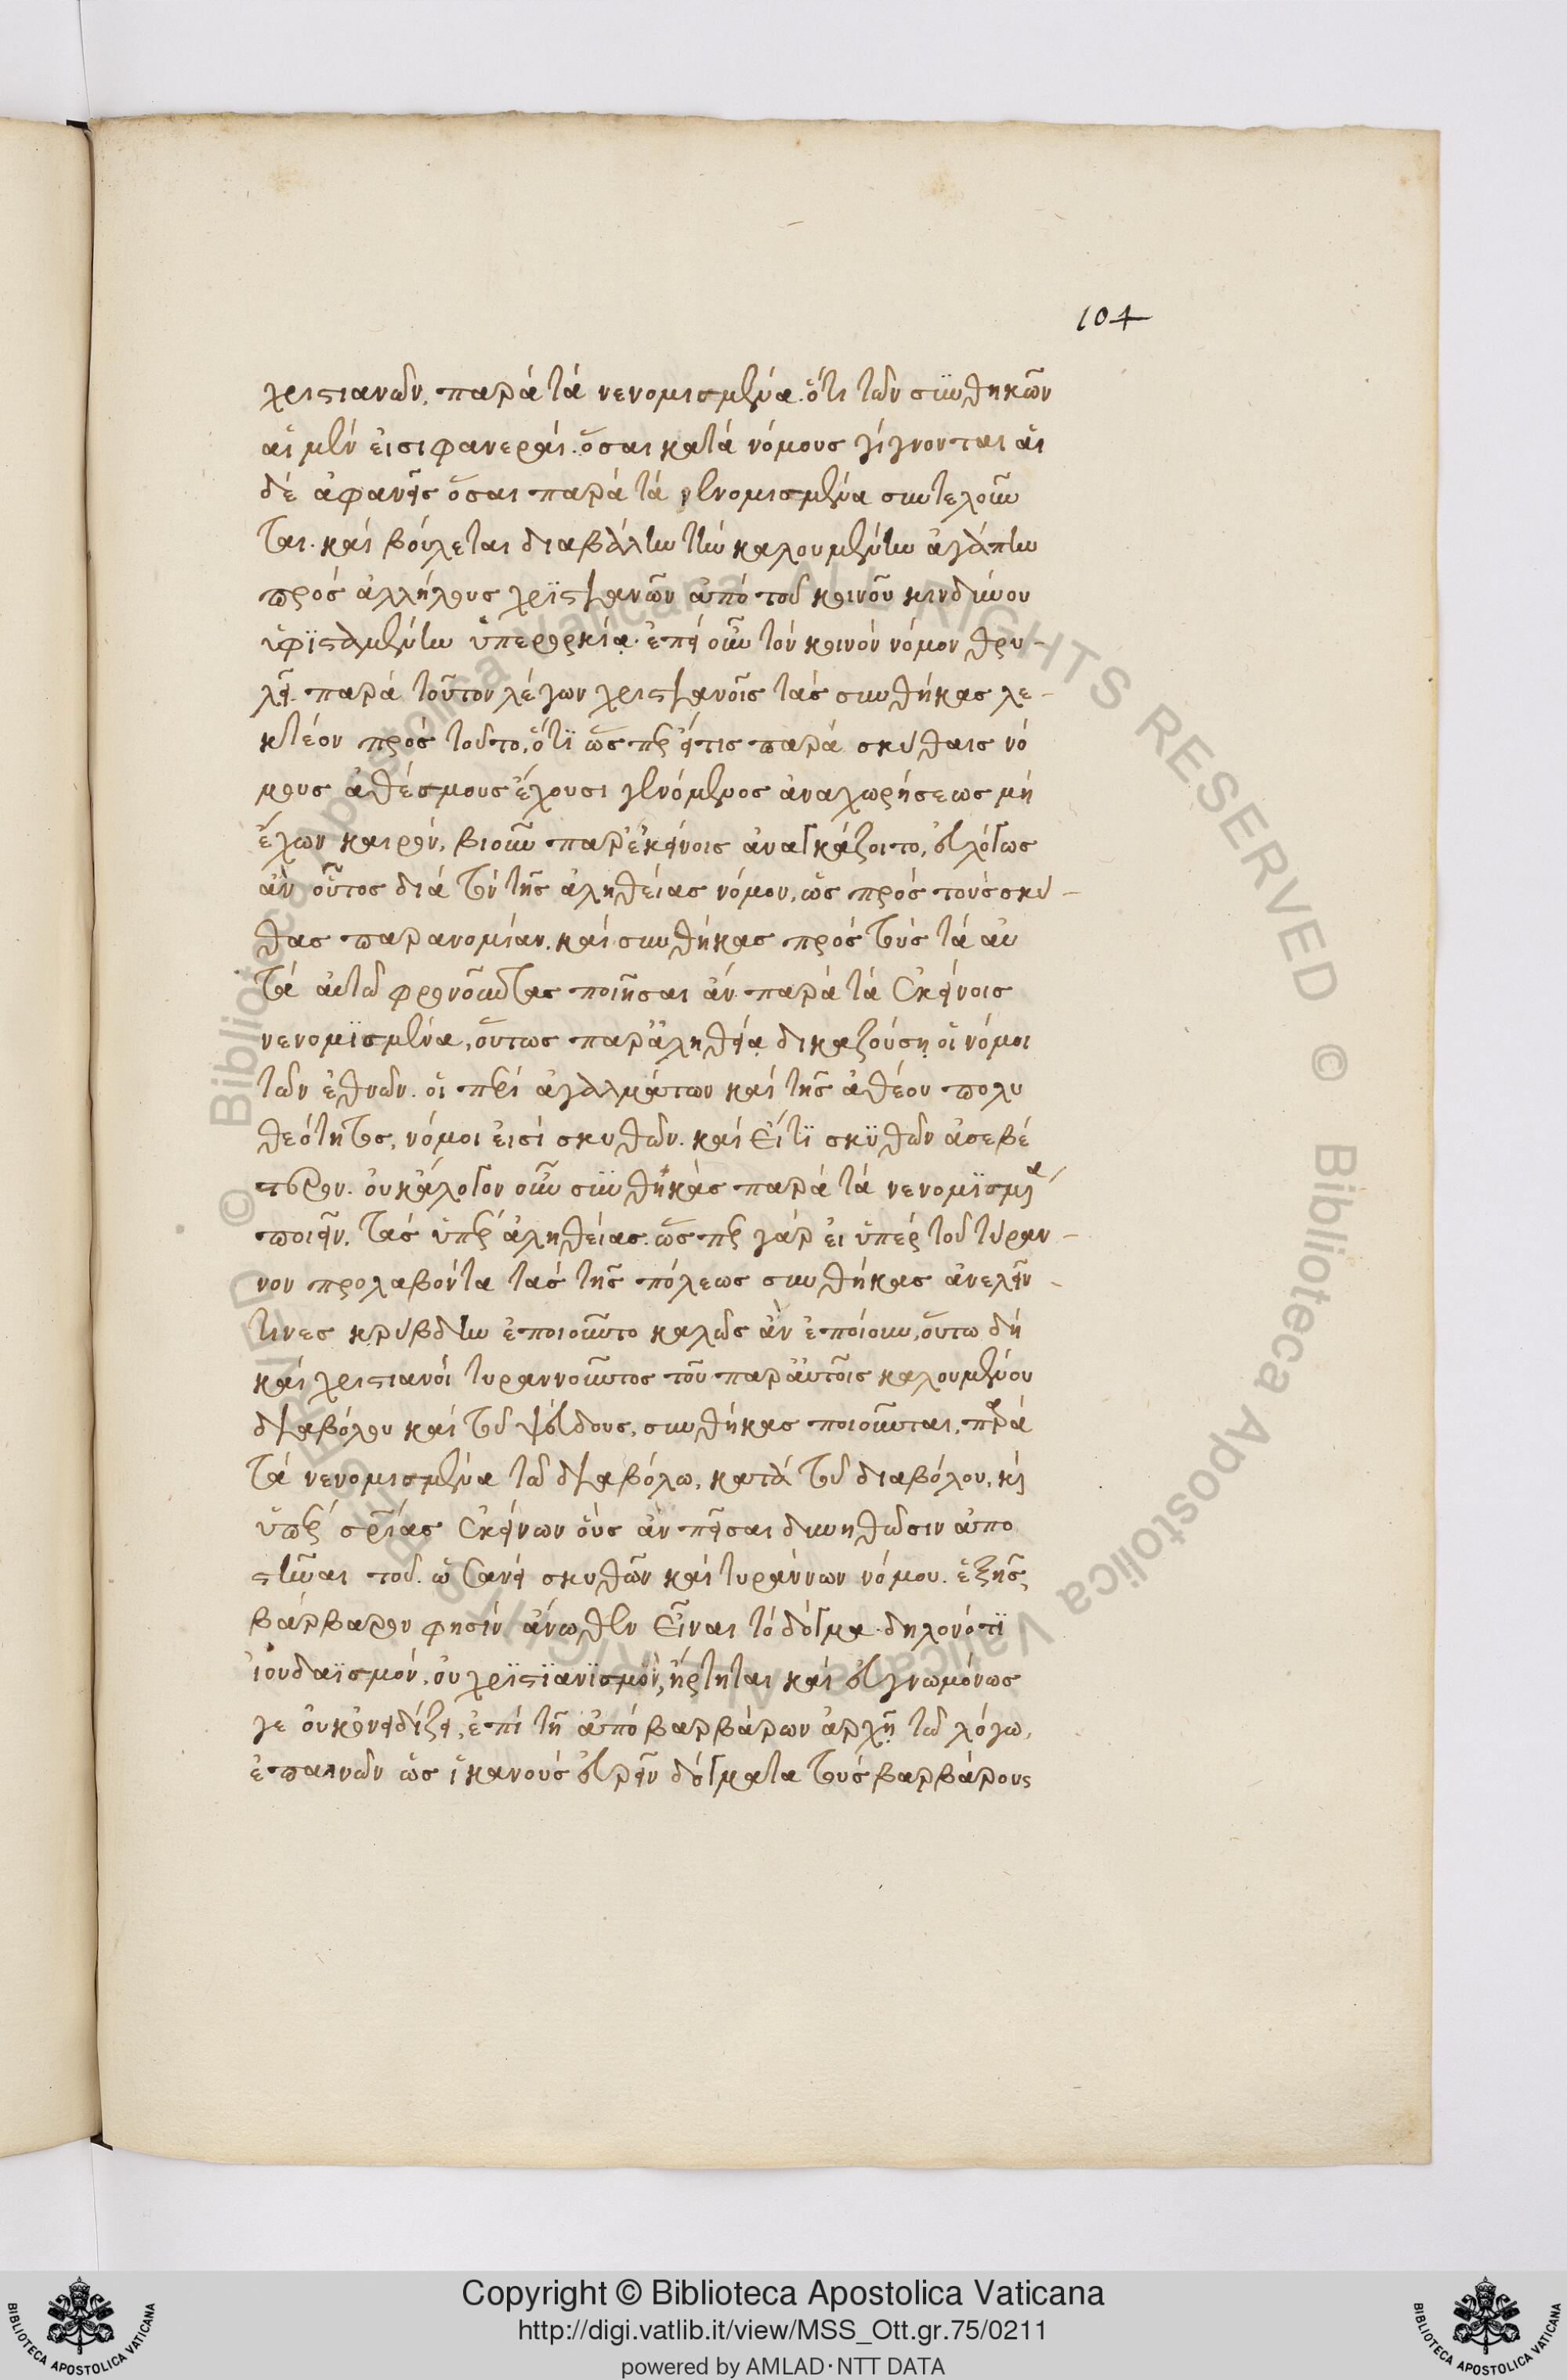 104
χριστιανῶν, παρὰ τὰ νενομισμένα. ὅτι τῶν συνθηκῶν
αἱ μέν εἰσι φανεραί. ὅσαι κατὰ νόμους γίγνονται αἱ
δὲ ἀφανεῖς ὅσαι παρὰ τὰ νενομισμένα συντελοῦν
ται. καὶ βούλεται διαβάλλειν τὴν καλουμένην ἀγάπην
πρὸς ἀλλήλους χριστιανῶν ἀπὸ τοῦ κοινοῦ κινδύνου
ὑφισταμένην ὑπερορκία. ἐπεὶ οὖν τὸν κοινὸν νόμον θρυ-
λεῖ. παρὰ τοῦτον λέγων χριστιανοῖς τὰς συνθήκας λε-
κτέον πρὸς τοῦτο, ὅτι ὥσπερ εἴ τις παρὰ σκύθαις νό
μους ἀθέσμους ἔχουσι γενόμενος ἀναχωρήσεως μὴ
ἔχων καιρὸν, βιοῦν παρ' ἐκείνοις ἀναγκάζοιτο, εὐλόγως
ἂν οὗτος διὰ τὸν τῆς ἀληθείας νόμον, ὡς πρὸς τοὺς σκύ-
θας παρανομίαν. καὶ συνθήκας πρὸς τοὺς τὰ αὐ
τὰ αὐτῷ φρονοῦντας ποιῆσαι ἂν παρὰ τὰ ἐκείνοις
νενομισμένα, οὕτως παρ' ἀληθείᾳ δικαζούσῃ οἱ νόμοι
τῶν ἐθνῶν. οἱ περὶ ἀγαλμάτων καὶ τῆς ἀθέου πολυ
θεότητος, νόμοι εἰσὶ σκυθῶν. καὶ εἴ τι σκυθῶν ἀσεβέ
στερον. οὐκ ἄλογον οὖν συνθήκας παρὰ τὰ νενομισμένα
ποιεῖν. τὰς ὑπὲρ ἀληθείας. ὥσπερ γὰρ εἰ ὑπὲρ τοῦ τύραν-
νον προλαβόντα τὰς τῆς πόλεως συνθήκας ἀνελεῖν-
τινες κρύβδην ἐποιοῦντο καλῶς ἂν ἐποίουν, οὕτω δὴ
καὶ χριστιανοὶ τυραννοῦντος τοῦ παρ' αὐτοῖς καλουμένου
διαβόλου καὶ τοῦ ψεύδους, συνθήκας ποιοῦνται, παρὰ
τὰ νενομισμένα τῷ διαβόλῳ, κατὰ τοῦ διαβόλου, καὶ
ὑπὲρ σωτηρίας ἐκείνων οὓς ἂν πεῖσαι δυνηθῶσιν ἀπο
στῆναι τοῦ. ὡσανεὶ σκυθῶν καὶ τυράννων νόμου. ἑξῆς
βάρβαρον φησὶν ἄνωθεν εἶναι τὸ δόγμα. δηλονότι
ἰουδαϊσμόν, οὗ χριστιανισμὸς, ἤρτηται καὶ εὐγνωμόνως
γε οὐκ ὀνειδίζει, ἐπὶ τῇ ἀπὸ βαρβάρων ἀρχῇ τῷ λόγῳ,
ἐπαινῶν ὡς ἱκανοὺς εὑρεῖν δόγματα τοὺς βαρβάρους
Copyright © Biblioteca Apostolica Vaticana
http://digi.vatlib.it/view/MSS_Ott.gr.75/0211
powered by AMLAD·NTT DATA